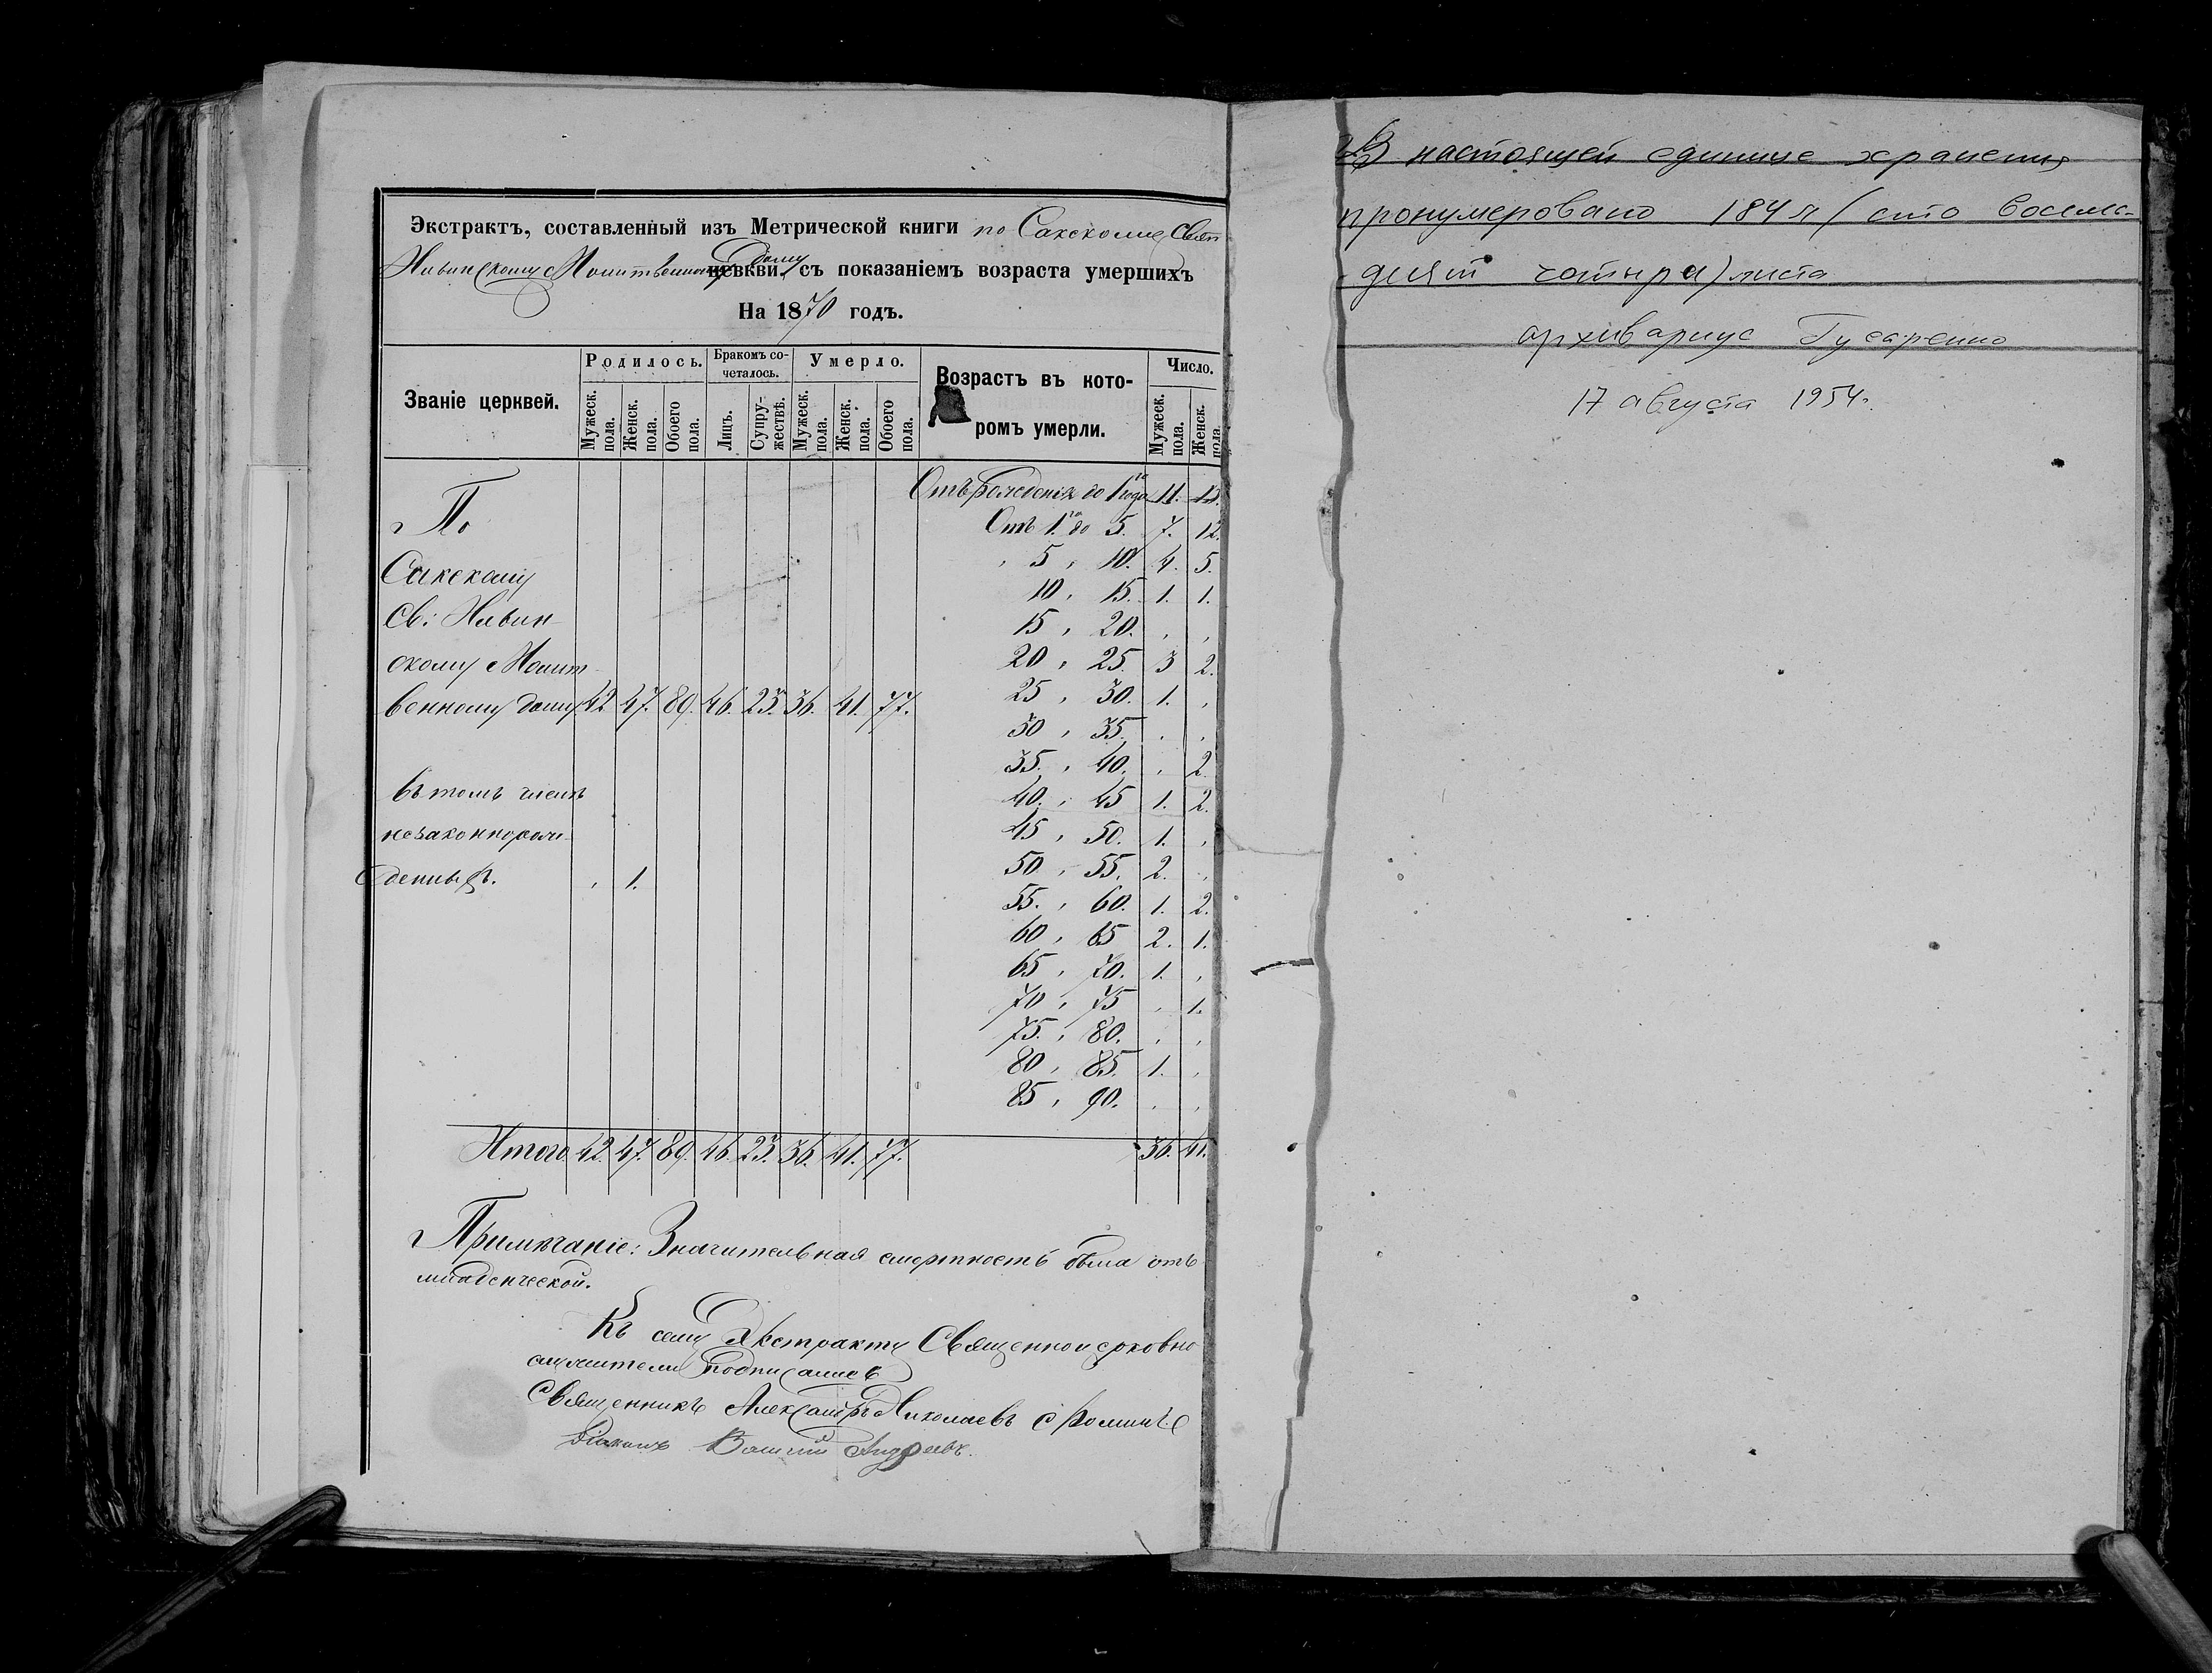 Экстрактъ, составленный изъ Метрической книги по Сакскому Свят
Ильинскому Молитвенному Дому церкви съ показаніемъ возраста умершихъ
На 1870 годъ.
Званіе церквей. Родилось. Бракомъ сочеталось. Умерло. Возрастъ въ которомъ умерли. Число.
Мужеск. пола. Женск. пола. Обоего пола. Лицъ. Супружествъ. Мужеск. пола. Женск. пола. Обоего пола. Мужеск. пола. Женск. пола.
По
Сакскому
Св: Ильин
скому Молит
венному дому 42 47. 89. 46. 23. 36. 41. 77.
въ томъ числѣ
незаконнорож
денныхъ. , 1.
Отъ рожденія до 1го года 11. 13.
Отъ 1го до 5. 7. 12.
, 5 , 10. 4. 5.
10 , 15. 1. 1.
15 , 20. , ,
20 , 25. 3 2.
25 , 30. 1. ,
30 , 35. , ,
35. , 40. , 2.
40. , 45 1. 2.
45 , 50. 1. ,
50 , 55. 2. ,
55. , 60. 1. 2.
60 , 65 2. 1.
65 , 70. 1. ,
70 , 75 , 1.
75. , 80. , ,
80 , 85. 1. ,
85 , 90. , ,
Итого 42. 47. 89. 46. 23. 36. 41. 77. 36. 41.
Примѣчаніе: Значительная смертность была отъ
младенческой.
Къ сему Экстракту Священноцерковно
служители подписались
Священникъ Александръ Николаевъ
Діаконъ Андреевъ.
В настоящей единице хранения
пронумеровано 184 л (сто восемь-
десят четыре) листа
архивариус Гусаренко
17 августа 1954г.